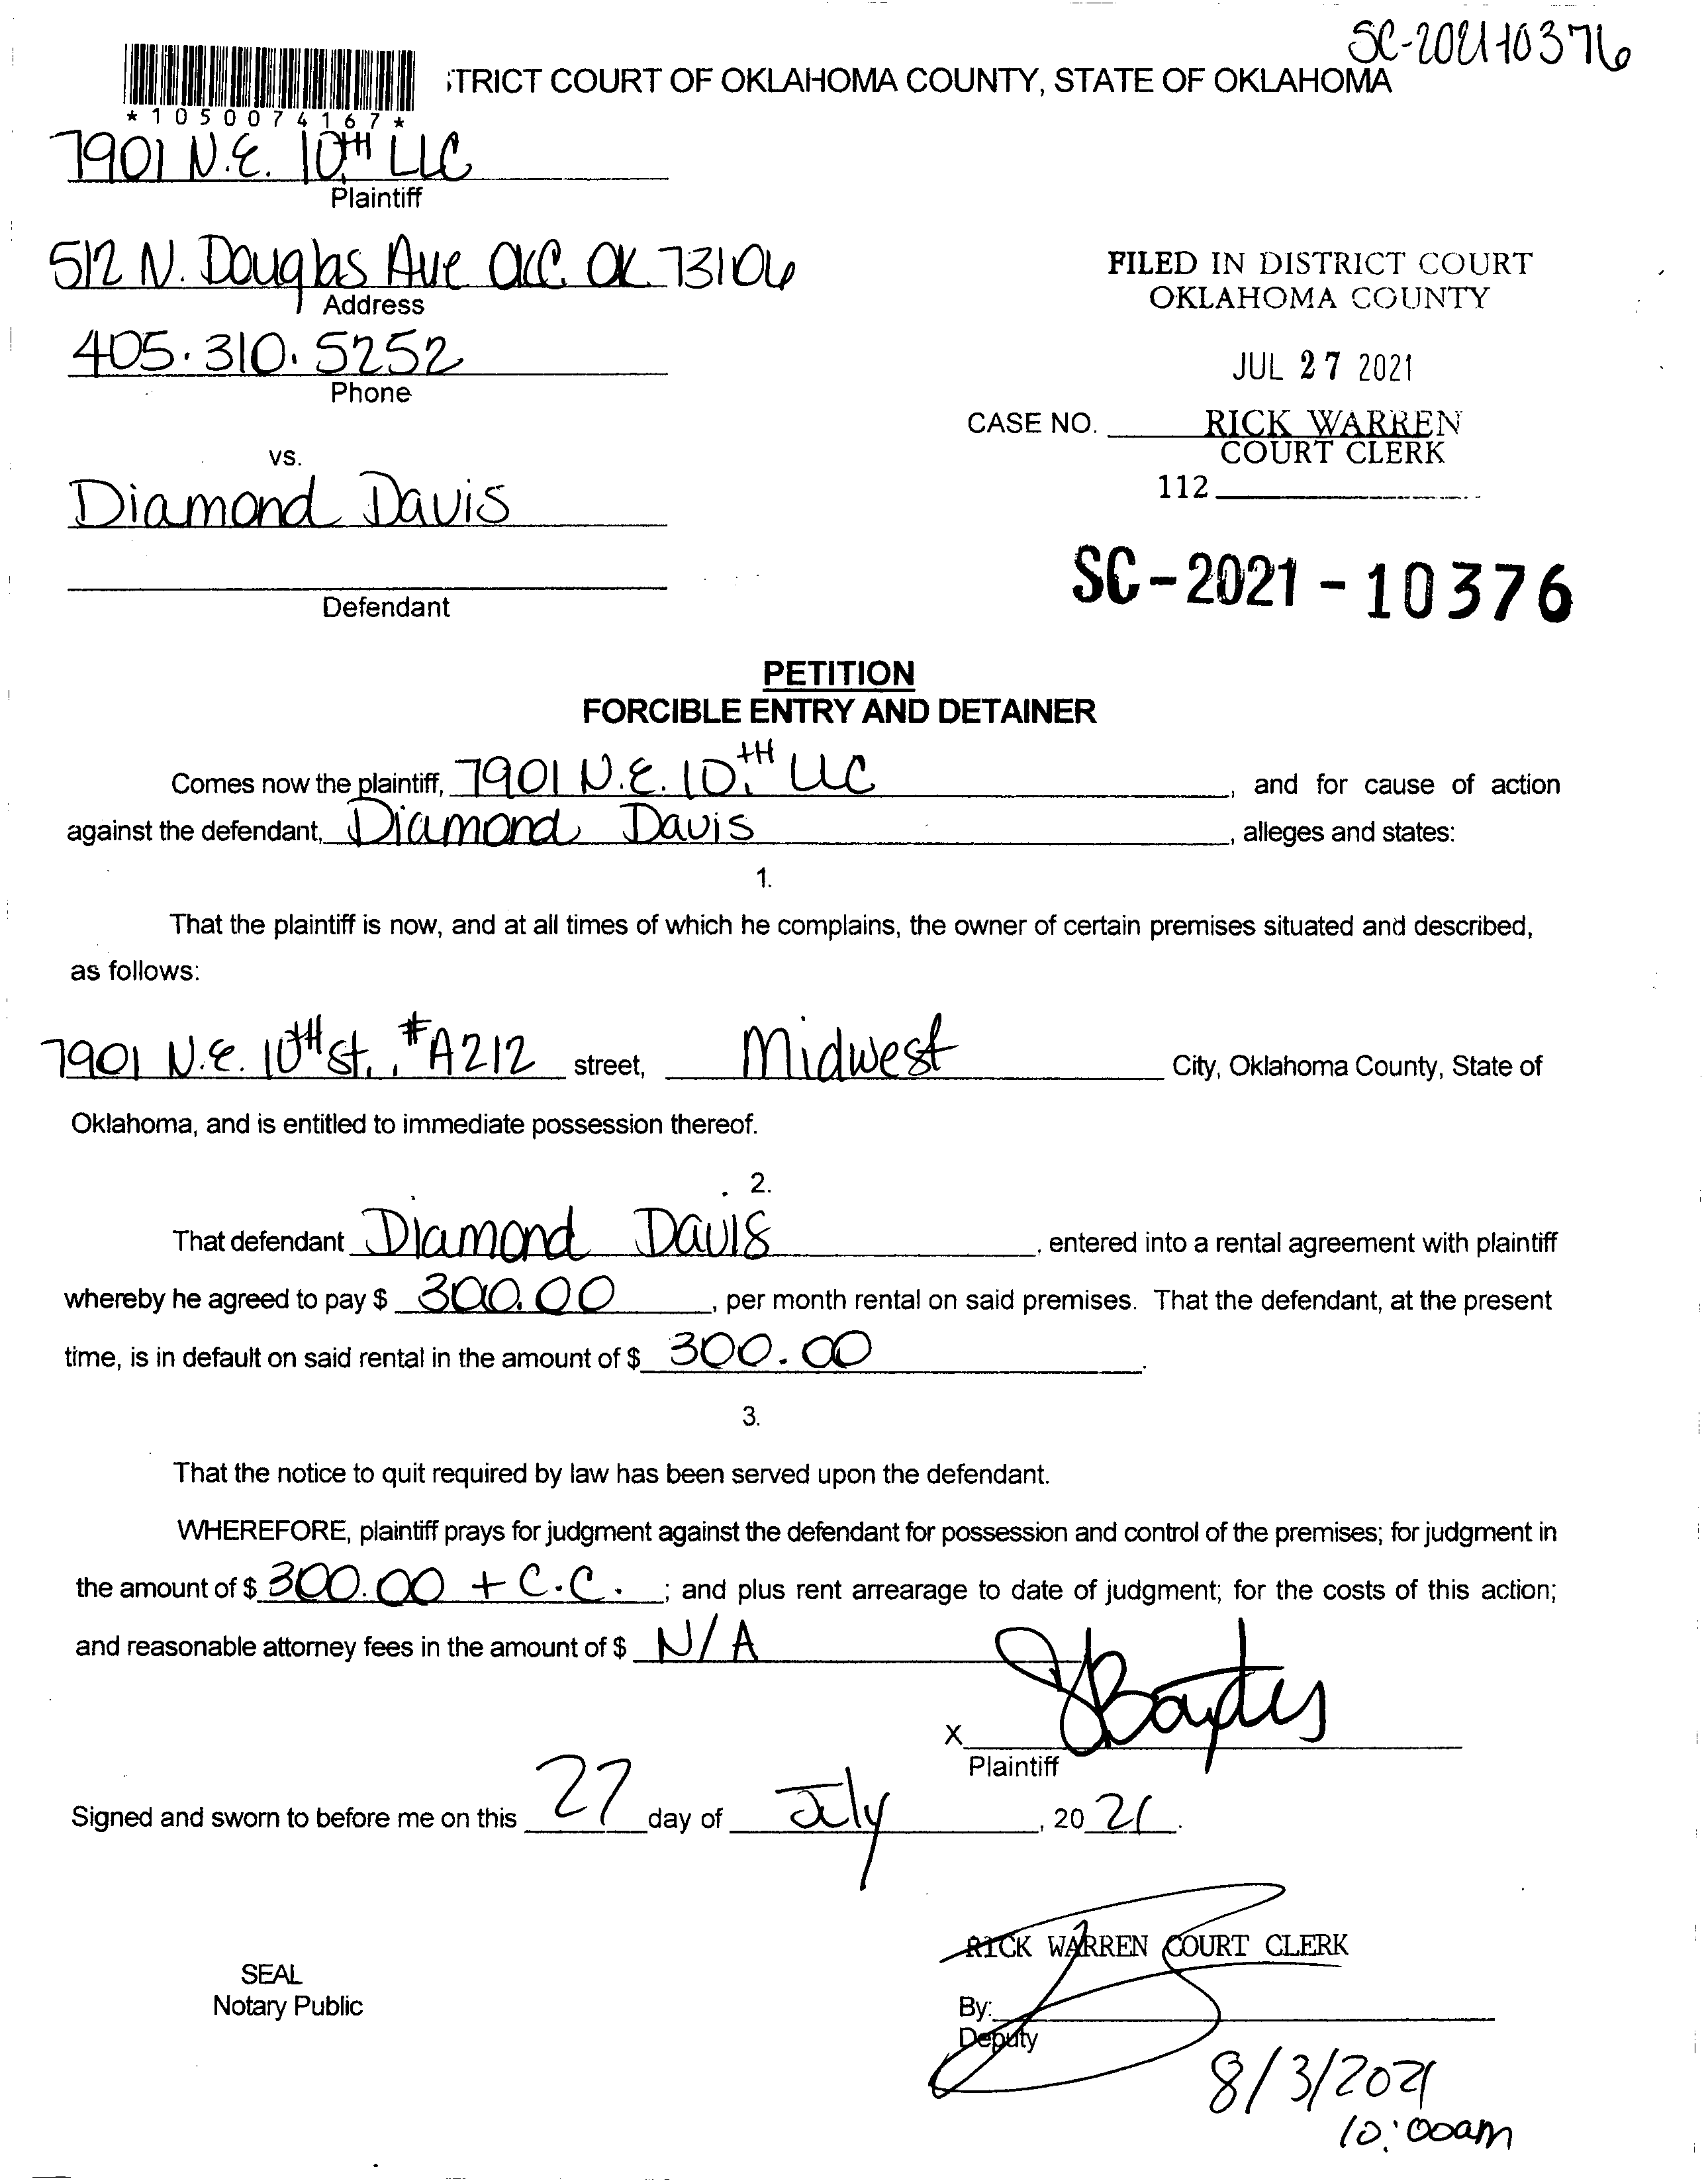 SC-2021-10376
TRICT COURT OF OKLAHOMA COUNTY, STATE OF OKLAHOMA
*1050074167*
7901 N.E. 10TH LLC
Plaintiff
512 N. Douglas Ave OKC. OK 73106
Address
FILED IN DISTRICT COURT
OKLAHOMA COUNTY
405.310.5252
Phone
JUL 27 2021
CASE NO. RICK WARREN
COURT CLERK
vs.
112
Diamond Davis
Defendant
SC-2021-10376
PETITION
FORCIBLE ENTRY AND DETAINER
Comes now the plaintiff, 7901 N.E. 10.TH LLC, and for cause of action
against the defendant, Diamond Davis, alleges and states:
1.
That the plaintiff is now, and at all times of which he complains, the owner of certain premises situated and described,
as follows:
7901 N.E. 10TH st., #A212 street, Midwest City, Oklahoma County, State of
Oklahoma, and is entitled to immediate possession thereof.
2.
That defendant Diamond Davis, entered into a rental agreement with plaintiff
whereby he agreed to pay $ 300.00, per month rental on said premises. That the defendant, at the present
time, is in default on said rental in the amount of $ 300.00.
3.
That the notice to quit required by law has been served upon the defendant.
WHEREFORE, plaintiff prays for judgment against the defendant for possession and control of the premises; for judgment in
the amount of $ 300.00 + C.C. ; and plus rent arrearage to date of judgment; for the costs of this action;
and reasonable attorney fees in the amount of $ N/A
X
Plaintiff
Signed and sworn to before me on this 27 day of July, 20 21.
RICK WARREN COURT CLERK
SEAL
Notary Public
By:
Deputy
8/3/2021
10:00am